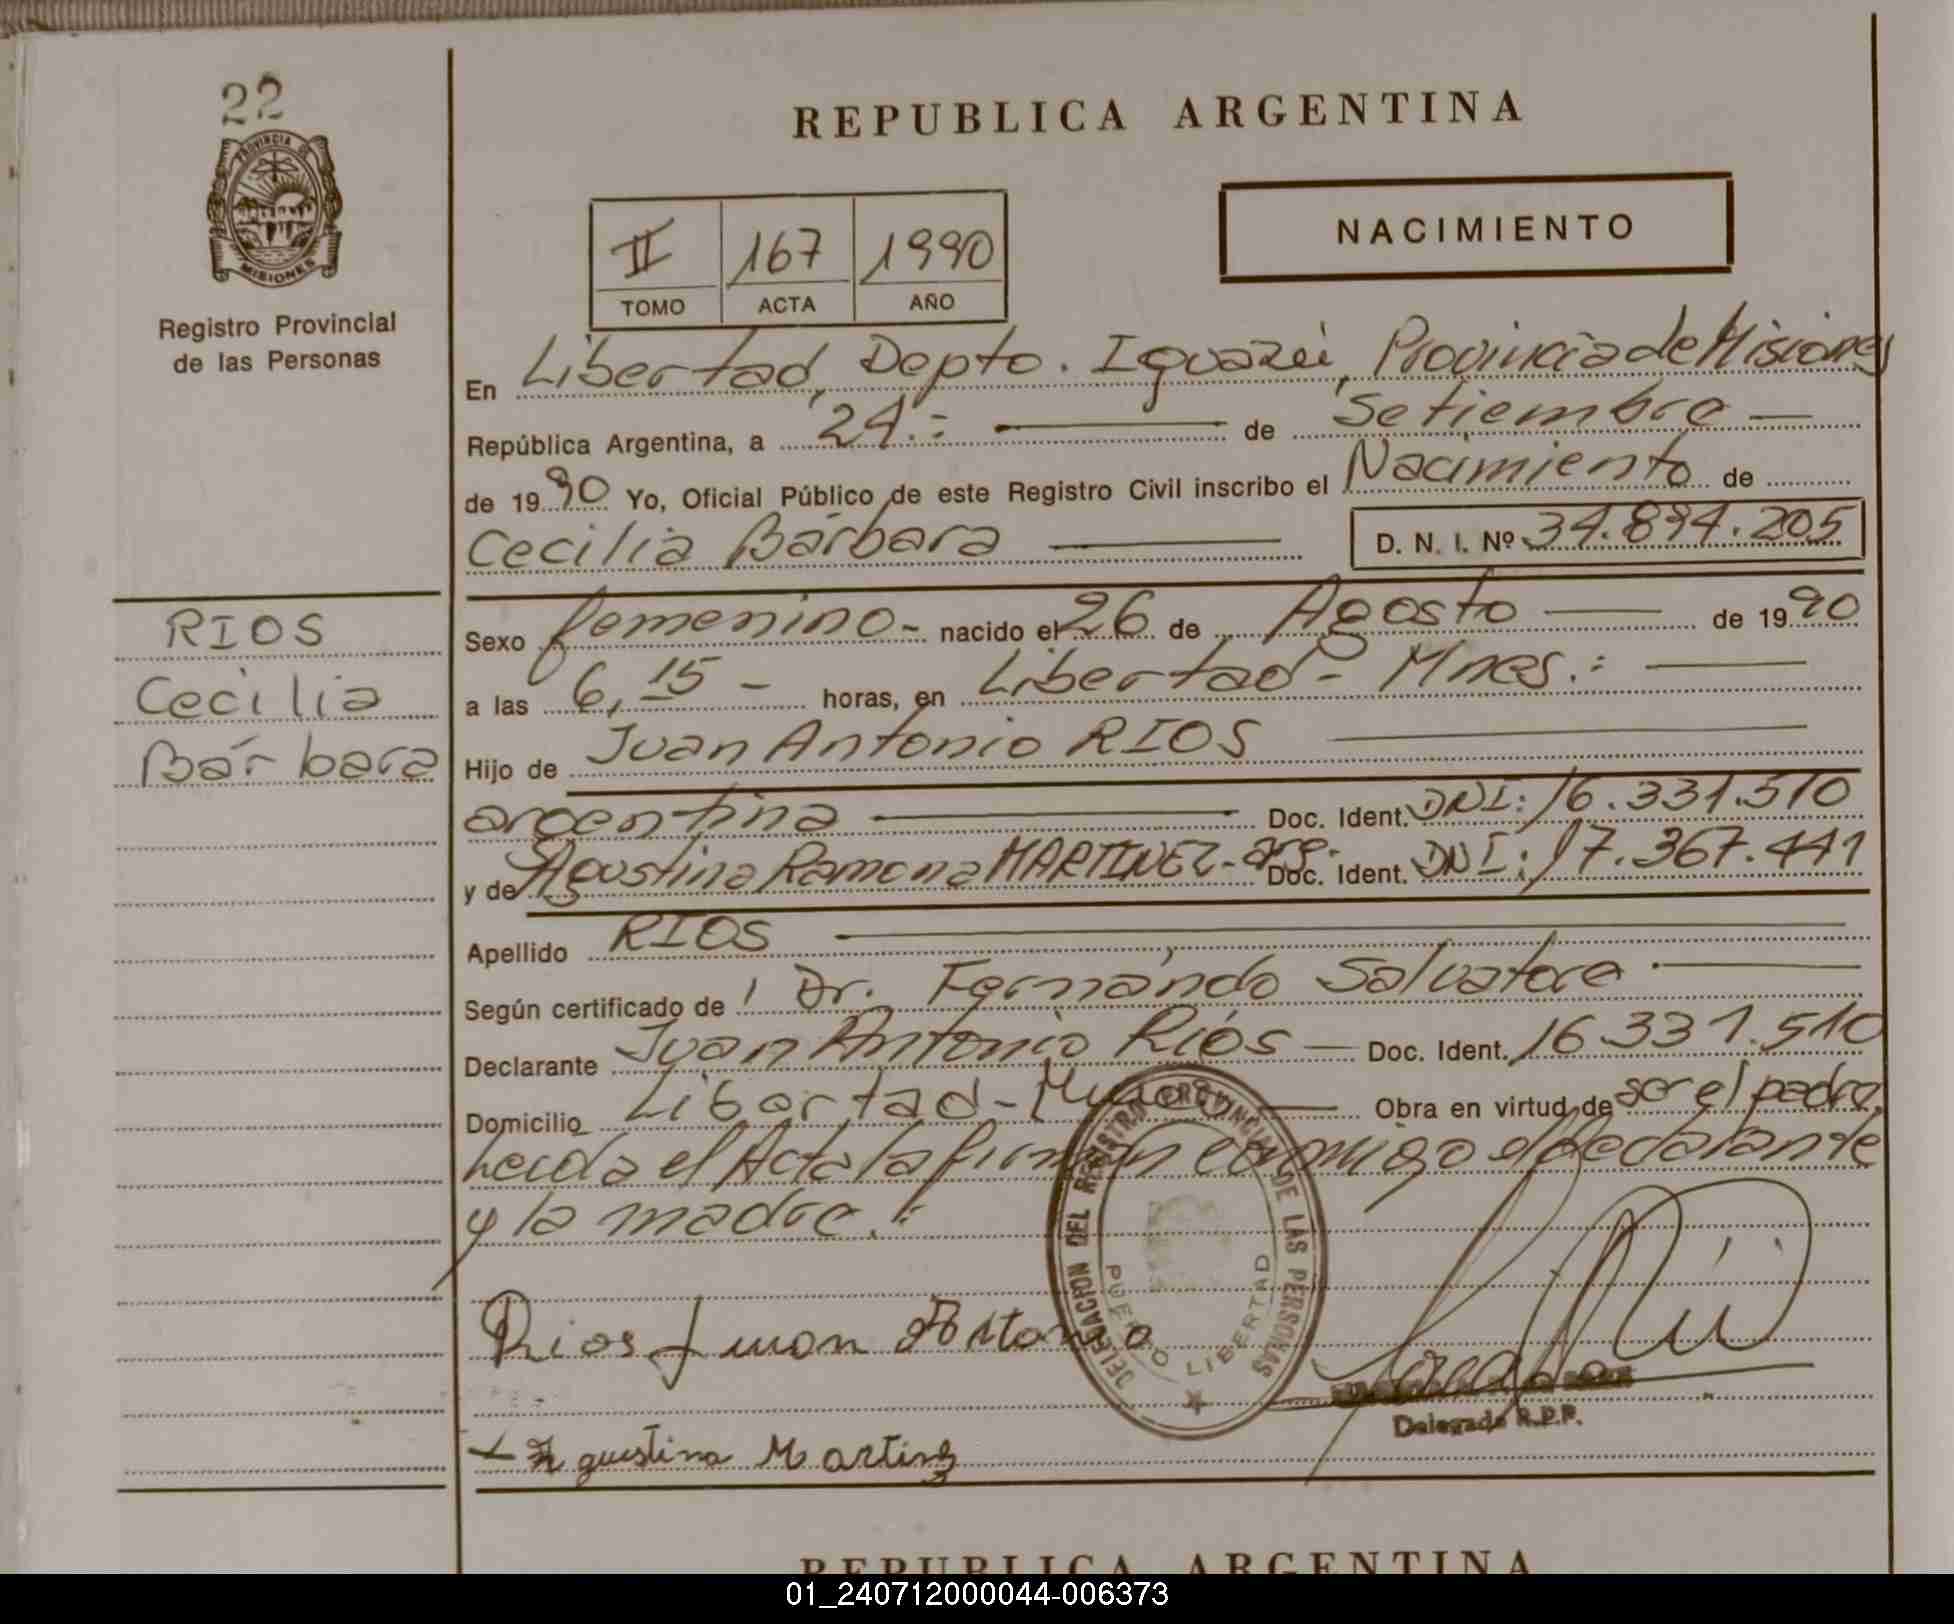 22
PROVINCIA DE
MISIONES
Registro Provincial
de las Personas
RIOS
Cecilia
Bárbara
REPUBLICA ARGENTINA
NACIMIENTO
II 167 1990
TOMO ACTA AÑO
En Libertad, Depto. Iguazú, Provincia de Misiones
República Argentina, a 24.= de Setiembre
de 1990 Yo, Oficial Público de este Registro Civil inscribo el Nacimiento de
Cecilia Bárbara D. N. I. Nº 34.894.205
Sexo femenino - nacido el 26 de Agosto de 1990
a las 6,15 - horas, en Libertad - Mnes.:
Hijo de Juan Antonio RIOS
argentina Doc. Ident. DNI: 16.331.510
y de Agustina Ramona MARTINEZ - arg. Doc. Ident. DNI: 17.367.441
Apellido RIOS
Según certificado de Dr. Fernando Salvatore
Declarante Juan Antonio Ríos - Doc. Ident. 16.331.510
Domicilio Libertad - Obra en virtud de ser el padre,
Leida el Acta la firman conmigo el declarante
y la madre.:
DELEGACION DEL REGISTRO PROVINCIAL DE LAS PERSONAS
PUERTO LIBERTAD
Rios Juan Antonio
Delegado R.P.P.
Agustina Martinez
REPUBLICA ARGENTINA
01_240712000044-006373